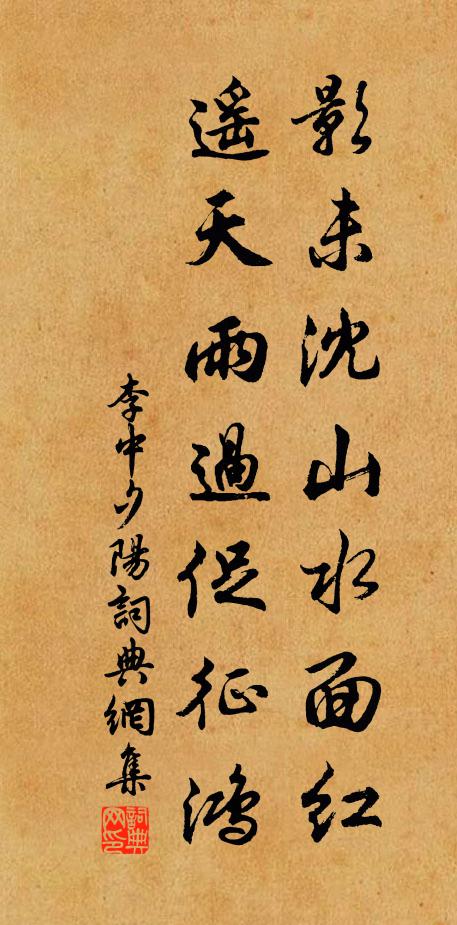 影未沈山水面紅
遥天雨過促征鴻
李中夕陽詞典網集
詞典网印